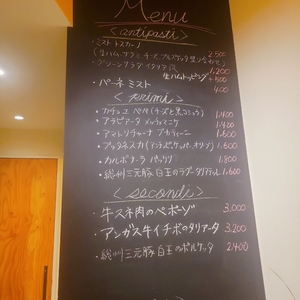 Menu
<antipasti>
・ミスト トスカーノ
(生ハム、サラミ、チーズ、ブルスケッタ盛り合わせ) 2,500
・グリーンサラダ イタリアーノ 1,200
生ハムトッピング +500
・パーネ ミスト 400
<primi>
・カチョエ ペペ(チーズと黒コショウ) 1,400
・アラビアータ 1,400
・アマトリチャーナ ブカティーニ 1,600
・プッタネスカ 1,600
・カルボナーラ 1,800
・総州三元豚 白王のラグー タリアテッレ 1,600
<secondi>
・牛スネ肉のペポーゾ 3,000
・アンガス牛イチボのタリアータ 3,200
・総州三元豚 白王のポルケッタ 2,400